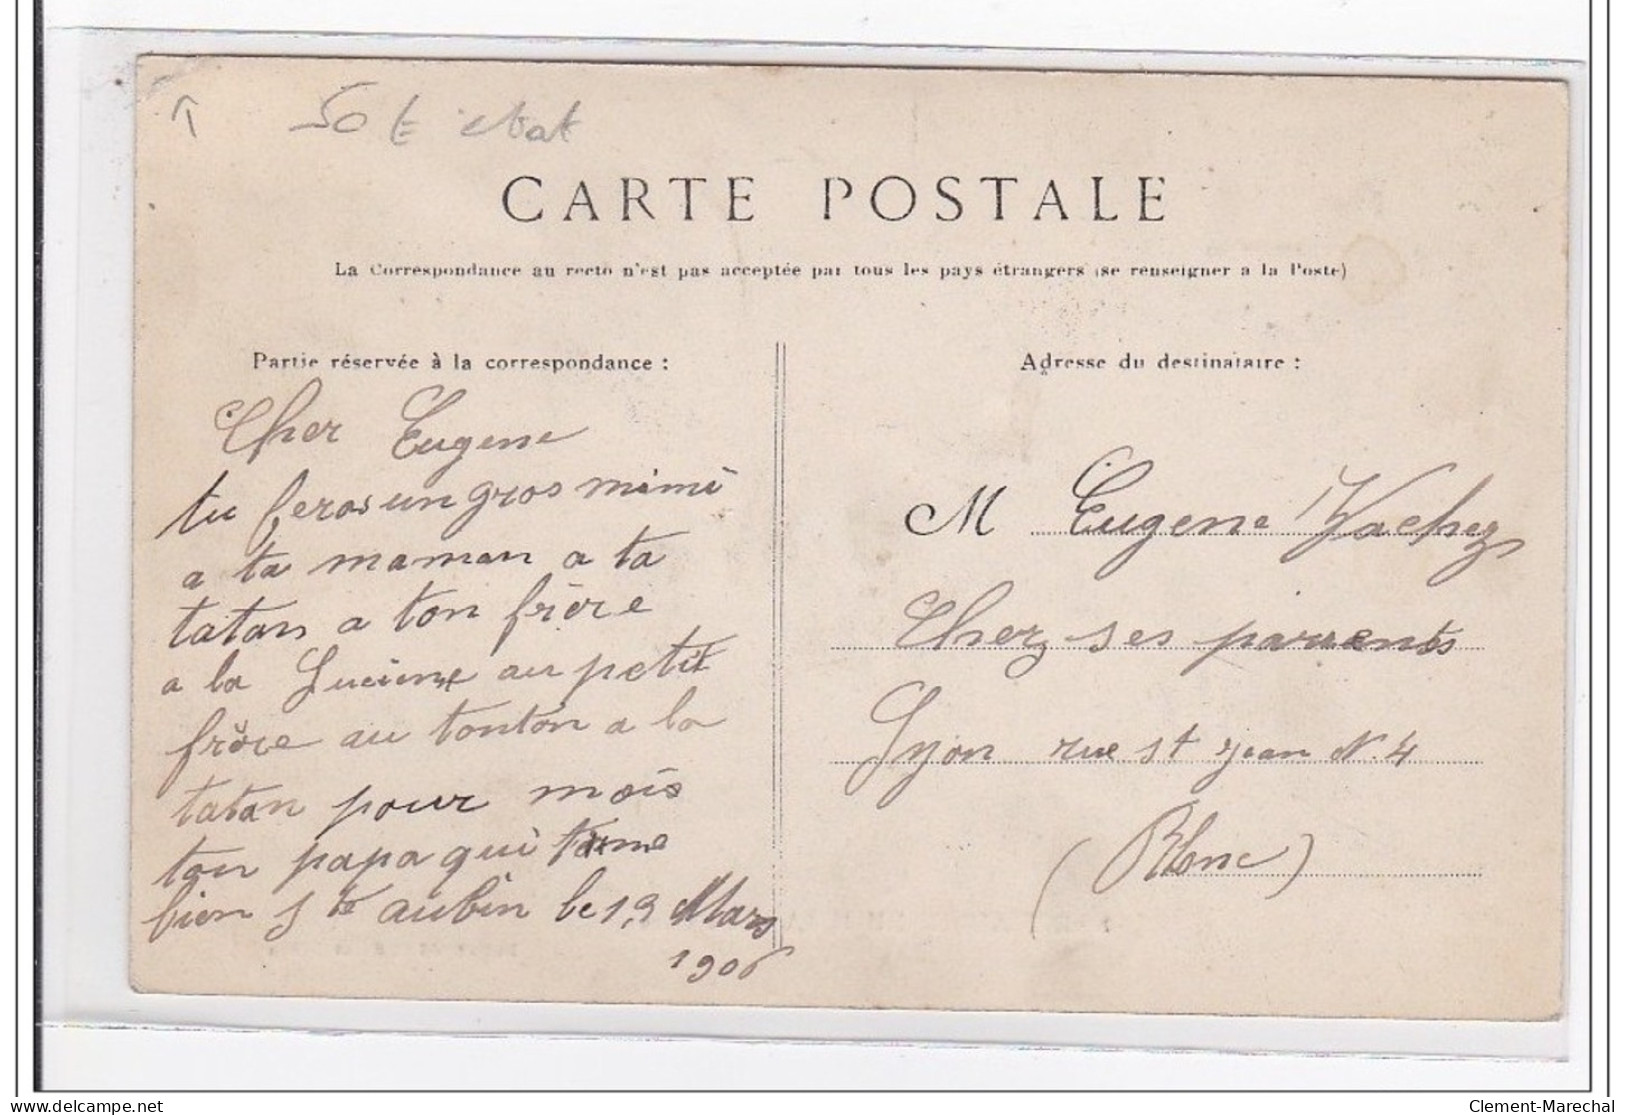 50 E etat
CARTE POSTALE
La Correspondance au recto n'est pas acceptée par tous les pays étrangers (se renseigner a la Poste)
Partie réservée à la correspondance :
Cher Eugene
tu feras un gros mimi
a ta maman a ta
tatan a ton frère
a la Lucienne au petit
frère au tonton a la
tatan pour mois
ton papa qui t'aime
bien Ste aubin le 19 Mars
1906
Adresse du destinataire :
M Eugene Vachez
Chez ses parrents
Lyon rue st jean N. 4
(Rhone)
delcampe.net
Clement-Marechal